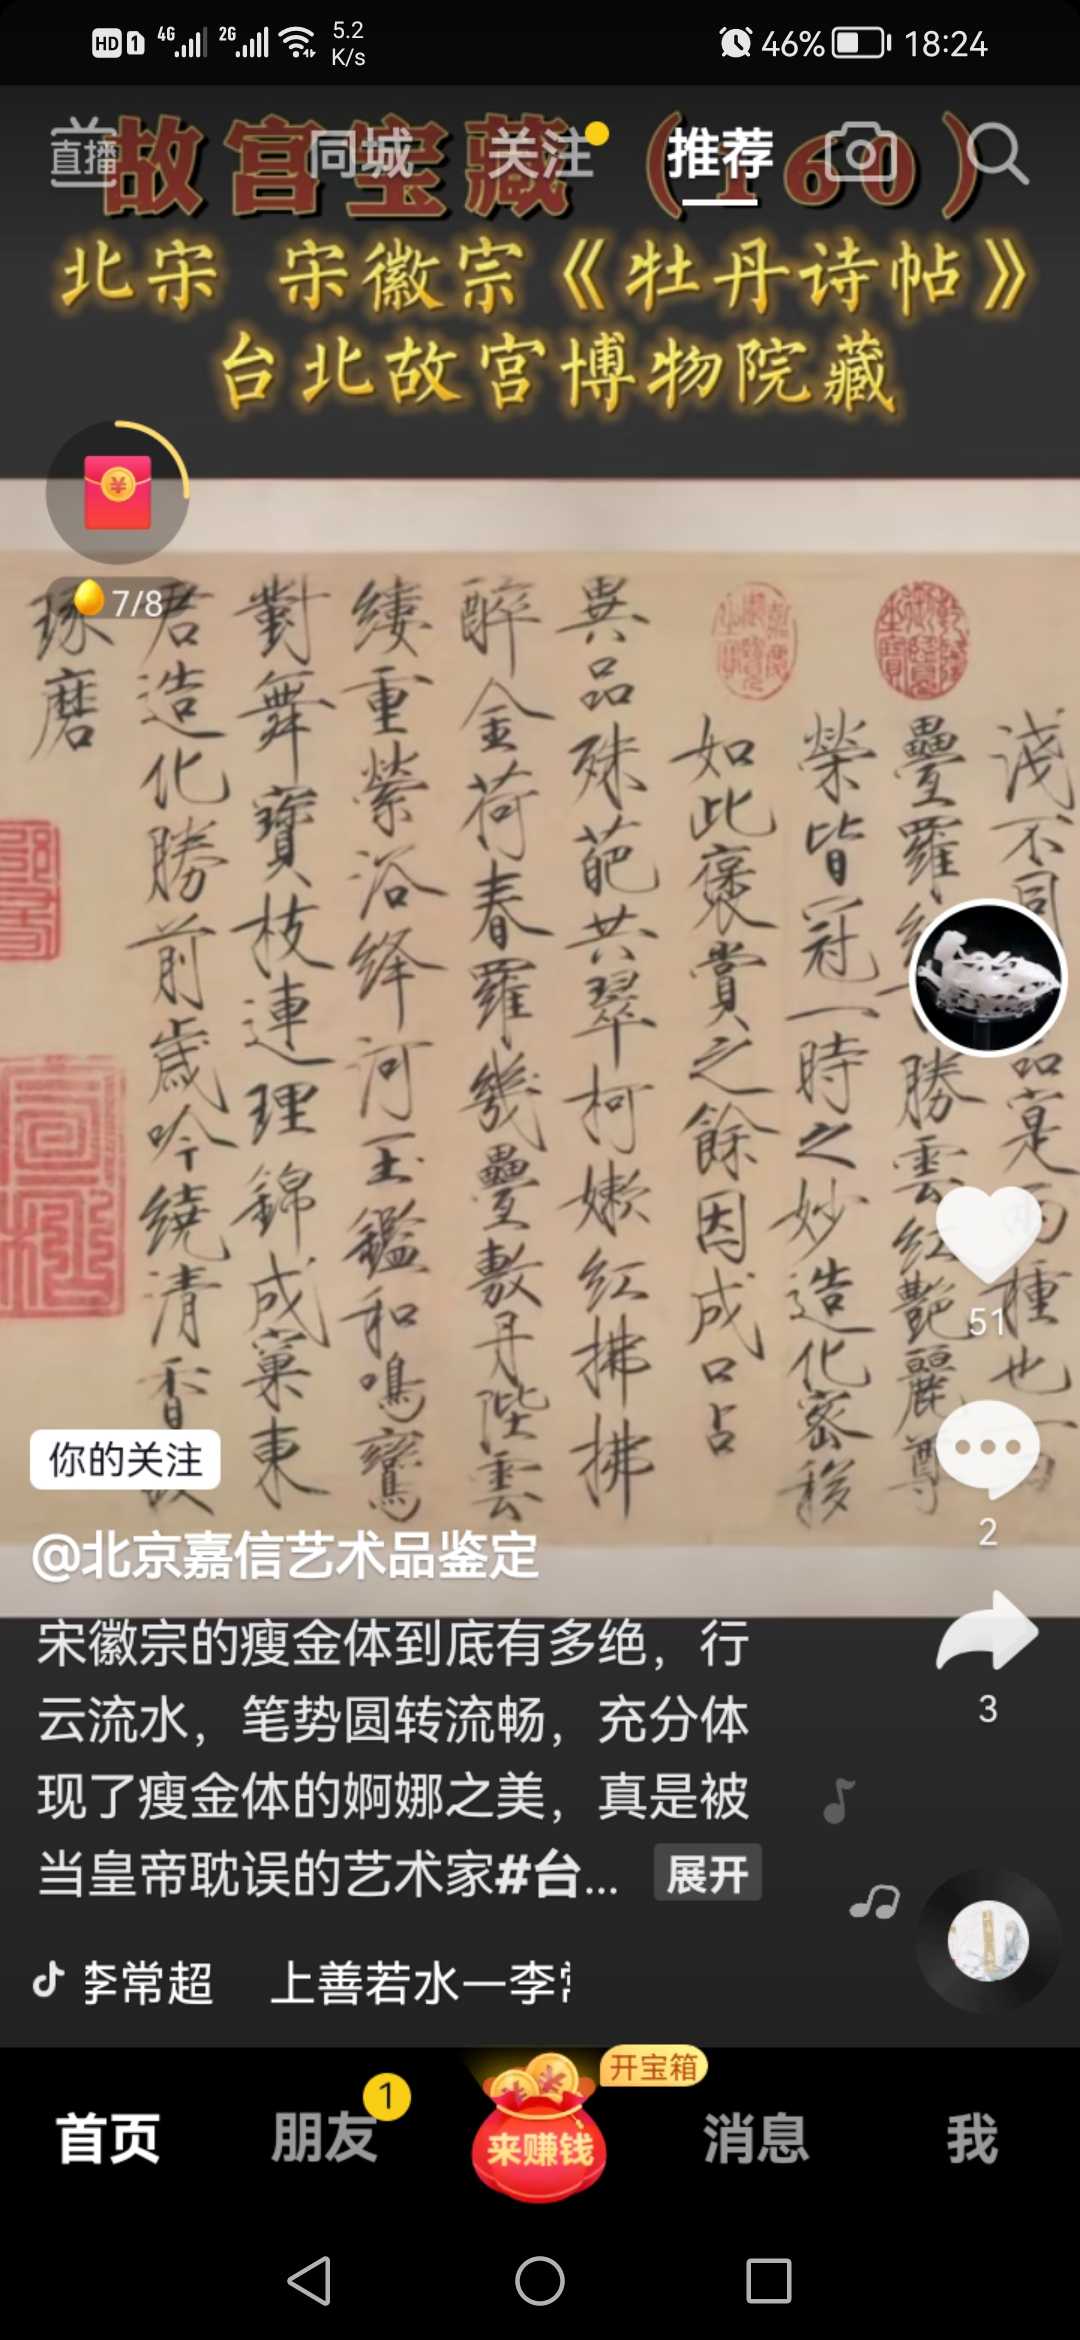 HD 1 4G 2G 5.2 K/s 46% 18:24
故宫宝藏（160）
直播 同城 关注 推荐
北宋 宋徽宗《牡丹诗帖》
台北故宫博物院藏
7/8
浅不同
品寔两種也
疊羅
勝雲紅艷麗尊
榮皆冠一時之妙造化密移
如此褒賞之餘因成口占
異品殊葩共翠柯嫩紅拂拂
醉金荷春羅幾疊敷丹陛雲
縷重縈浴絳河玉鑑和鳴鸞
對舞寶枝連理錦成窠東
君造化勝前歲吟繞清香故
琢磨
51
你的关注
2
@北京嘉信艺术品鉴定
宋徽宗的瘦金体到底有多绝，行
云流水，笔势圆转流畅，充分体
现了瘦金体的婀娜之美，真是被
当皇帝耽误的艺术家#台... 展开
3
李常超 上善若水一李常
开宝箱
首页 朋友 1 来赚钱 消息 我